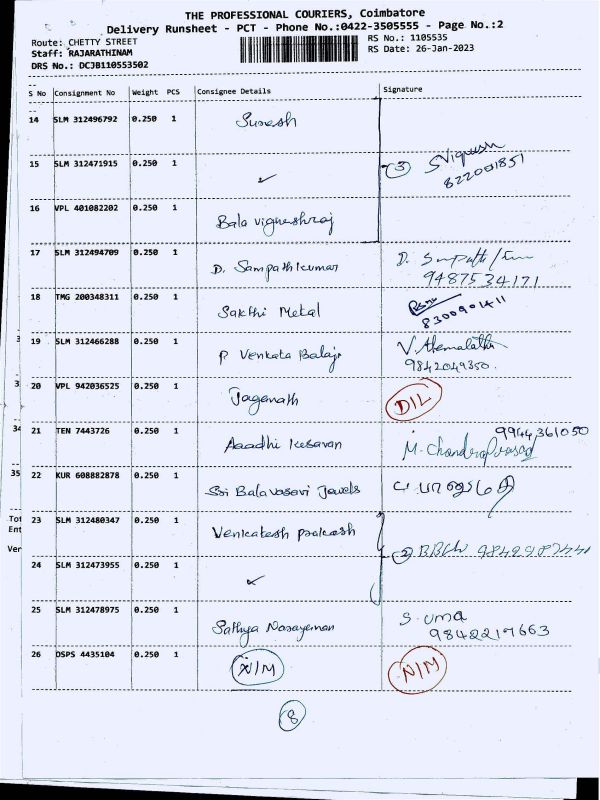 THE PROFESSIONAL COURIERS, Coimbatore
Delivery Runsheet - PCT - Phone No.:0422-3505555 - Page No.:2
Route: CHETTY STREET
RS No.: 1105535
Staff: RAJARATHINAM
RS Date: 26-Jan-2023
DRS No.: DCJB110553502
S No Consignment No Weight PCS Consignee Details Signature
14 SLM 312496792 0.250 1 Suresh
15 SLM 312471915 0.250 1 ✓ (3) S Vignesh
822001851
16 VPL 401082202 0.250 1 Bala vigneshraj
17 SLM 312494709 0.250 1 D. Sampathkumar D.
9487534171
18 TMG 200348311 0.250 1 Sakthi Metal
8300901411
19 SLM 312466288 0.250 1 P Venkata Balaji V. Hemalatha
9842049350.
20 VPL 942036525 0.250 1 Jaganath DIL
21 TEN 7443726 0.250 1 Aaadhi Kesavan 9944361050
M. Chandraprasad
22 KUR 608882878 0.250 1 Sri Balavasavi Jewels
23 SLM 312480347 0.250 1 Venkatesh prakash
24 SLM 312473955 0.250 1 ✓ (2)
25 SLM 312478975 0.250 1 Sathya Narayeman S. uma
9842217663
26 OSPS 4435104 0.250 1 N/M N/M
8
3
3
34
35
Tot
Ent
Ver